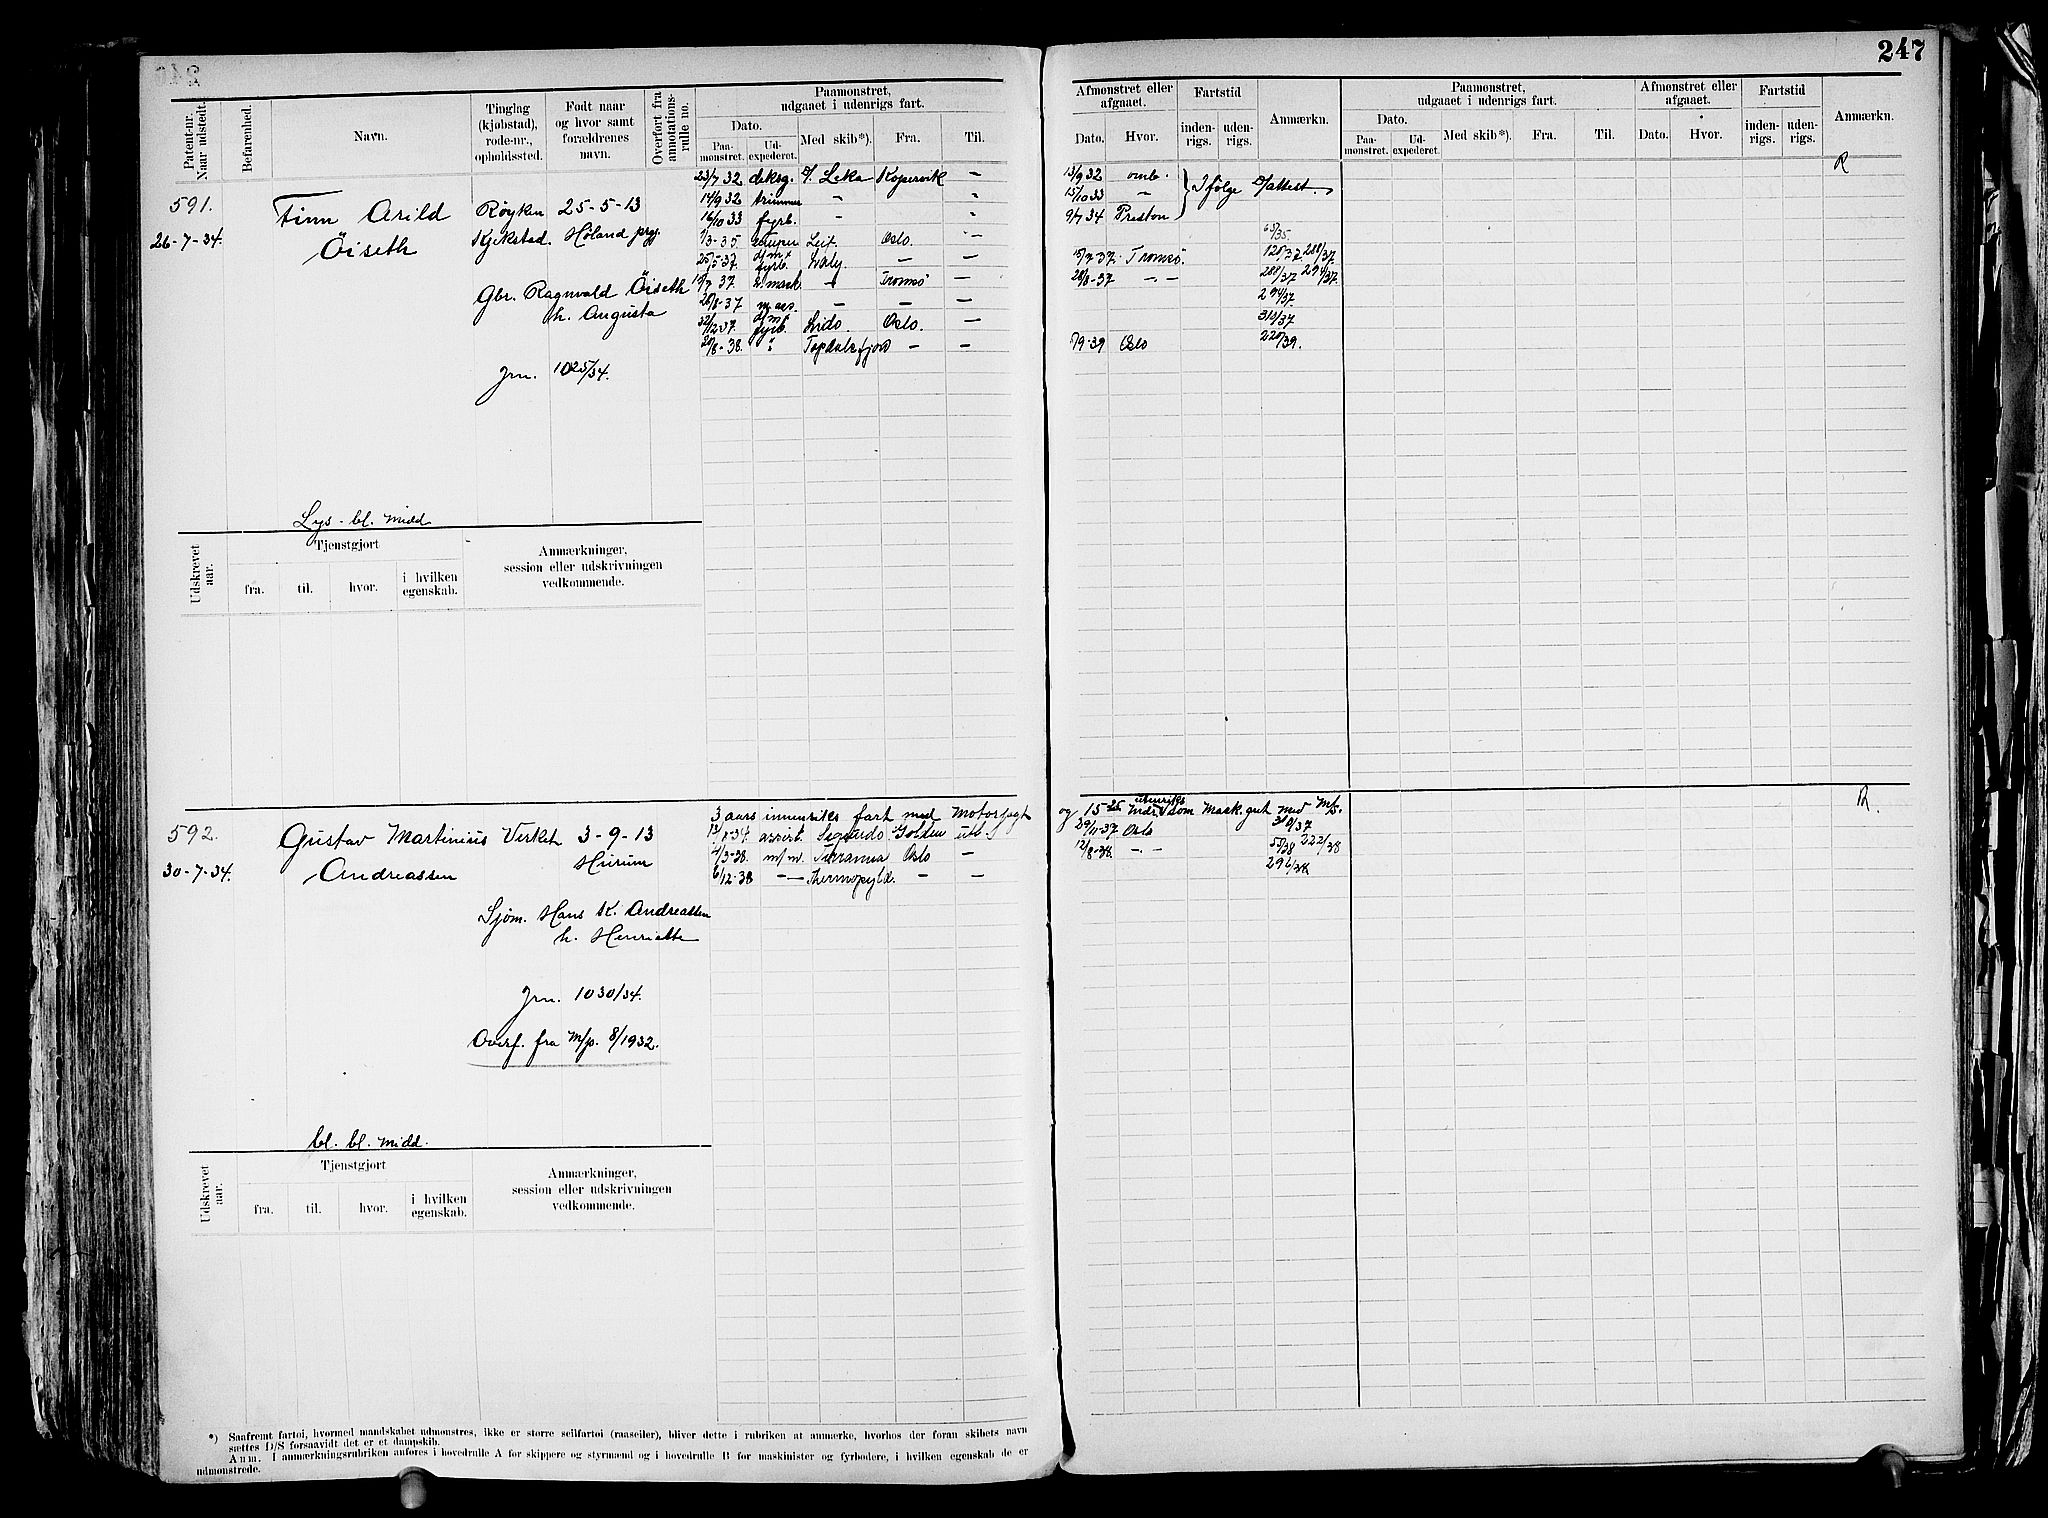 247
Patent-nr. Naar udstedt.
Befarenhed.
Navn.
Tinglag (kjøbstad), rode-nr., opholdssted.
Født naar og hvor samt forældrenes navn.
Overført fra annotations-rulle no.
Paamonstret, udgaaet i udenrigs fart.
Dato.
Paa-monstret.
Ud-expederet.
Med skib*).
Fra.
Til.
Afmonstret eller afgaaet.
Dato.
Hvor.
Fartstid
inden-rigs.
uden-rigs.
Anmærkn.
Paamonstret, udgaaet i udenrigs fart.
Dato.
Paa-monstret.
Ud-expederet.
Med skib*).
Fra.
Til.
Afmonstret eller afgaaet.
Dato.
Hvor.
Fartstid
inden-rigs.
uden-rigs.
Anmærkn.
R
591.
26-7-34.
Finn Arild
Öiseth
Røyken 25-5-13
Kjekstad. Høland prgj.
Gbr. Ragnvald Öiseth
h. Augusta
Jrn. 1025/34.
23/7 32 deksg. Leka Kopervik — 13/9 32 omb.
14/9 32 trimmer — 15/10 33 — Ifølge attest.
16/10 33 fyrb. — 9/7 34 Preston
1/3-35 Leif. Oslo. — 65/35
25/5-37 fyrb. — — 15/7-37 Tromsö. 288/37
15/7 37 — Tromsö — 28/8-37 —„— 288/37 294/37
28/8-37 — — — 294/37
12-37 fyrb. Lido. Oslo. — 313/37
8-38. Topdalsfjord — — 9-39 Oslo 220/39.
Lys - bl. midd
Udskrevet aar.
Tjenstgjort
fra.
til.
hvor.
i hvilken egenskab.
Anmærkninger, session eller udskrivningen vedkommende.
592.
30-7-34.
Gustav Martinius Virket 3-9-13
Andreassen Hurum
Sjøm. Hans K. Andreassen
h. Henriette
Jrn. 1030/34.
Overf. fra M/p. 8/1932.
3 aars innenriks fart med Motorjagt og 15 utenriks som Mask. gut med M/S.
R.
assist. Golden 29/11-37 Oslo 310/37
4/3-38. m/m. Tirranna Oslo — 12/8-38. —„— 55/38 222/38
6/12-38 —„— Thermopylæ. — — 296/38
bl. bl. midd.
Udskrevet aar.
Tjenstgjort
fra.
til.
hvor.
i hvilken egenskab.
Anmærkninger, session eller udskrivningen vedkommende.
*) Saafremt fartøi, hvormed mandskabet udmonstres, ikke er større seilfartøi (raaseiler), bliver dette i rubriken at anmærke, hvorhos der foran skibets navn
sættes D/S forsaavidt det er et dampskib.
Anm. I anmærkningsrubriken anføres i hovedrulle A for skippere og styrmænd og i hovedrulle B for maskinister og fyrbødere, i hvilken egenskab de er
udmonstrede.